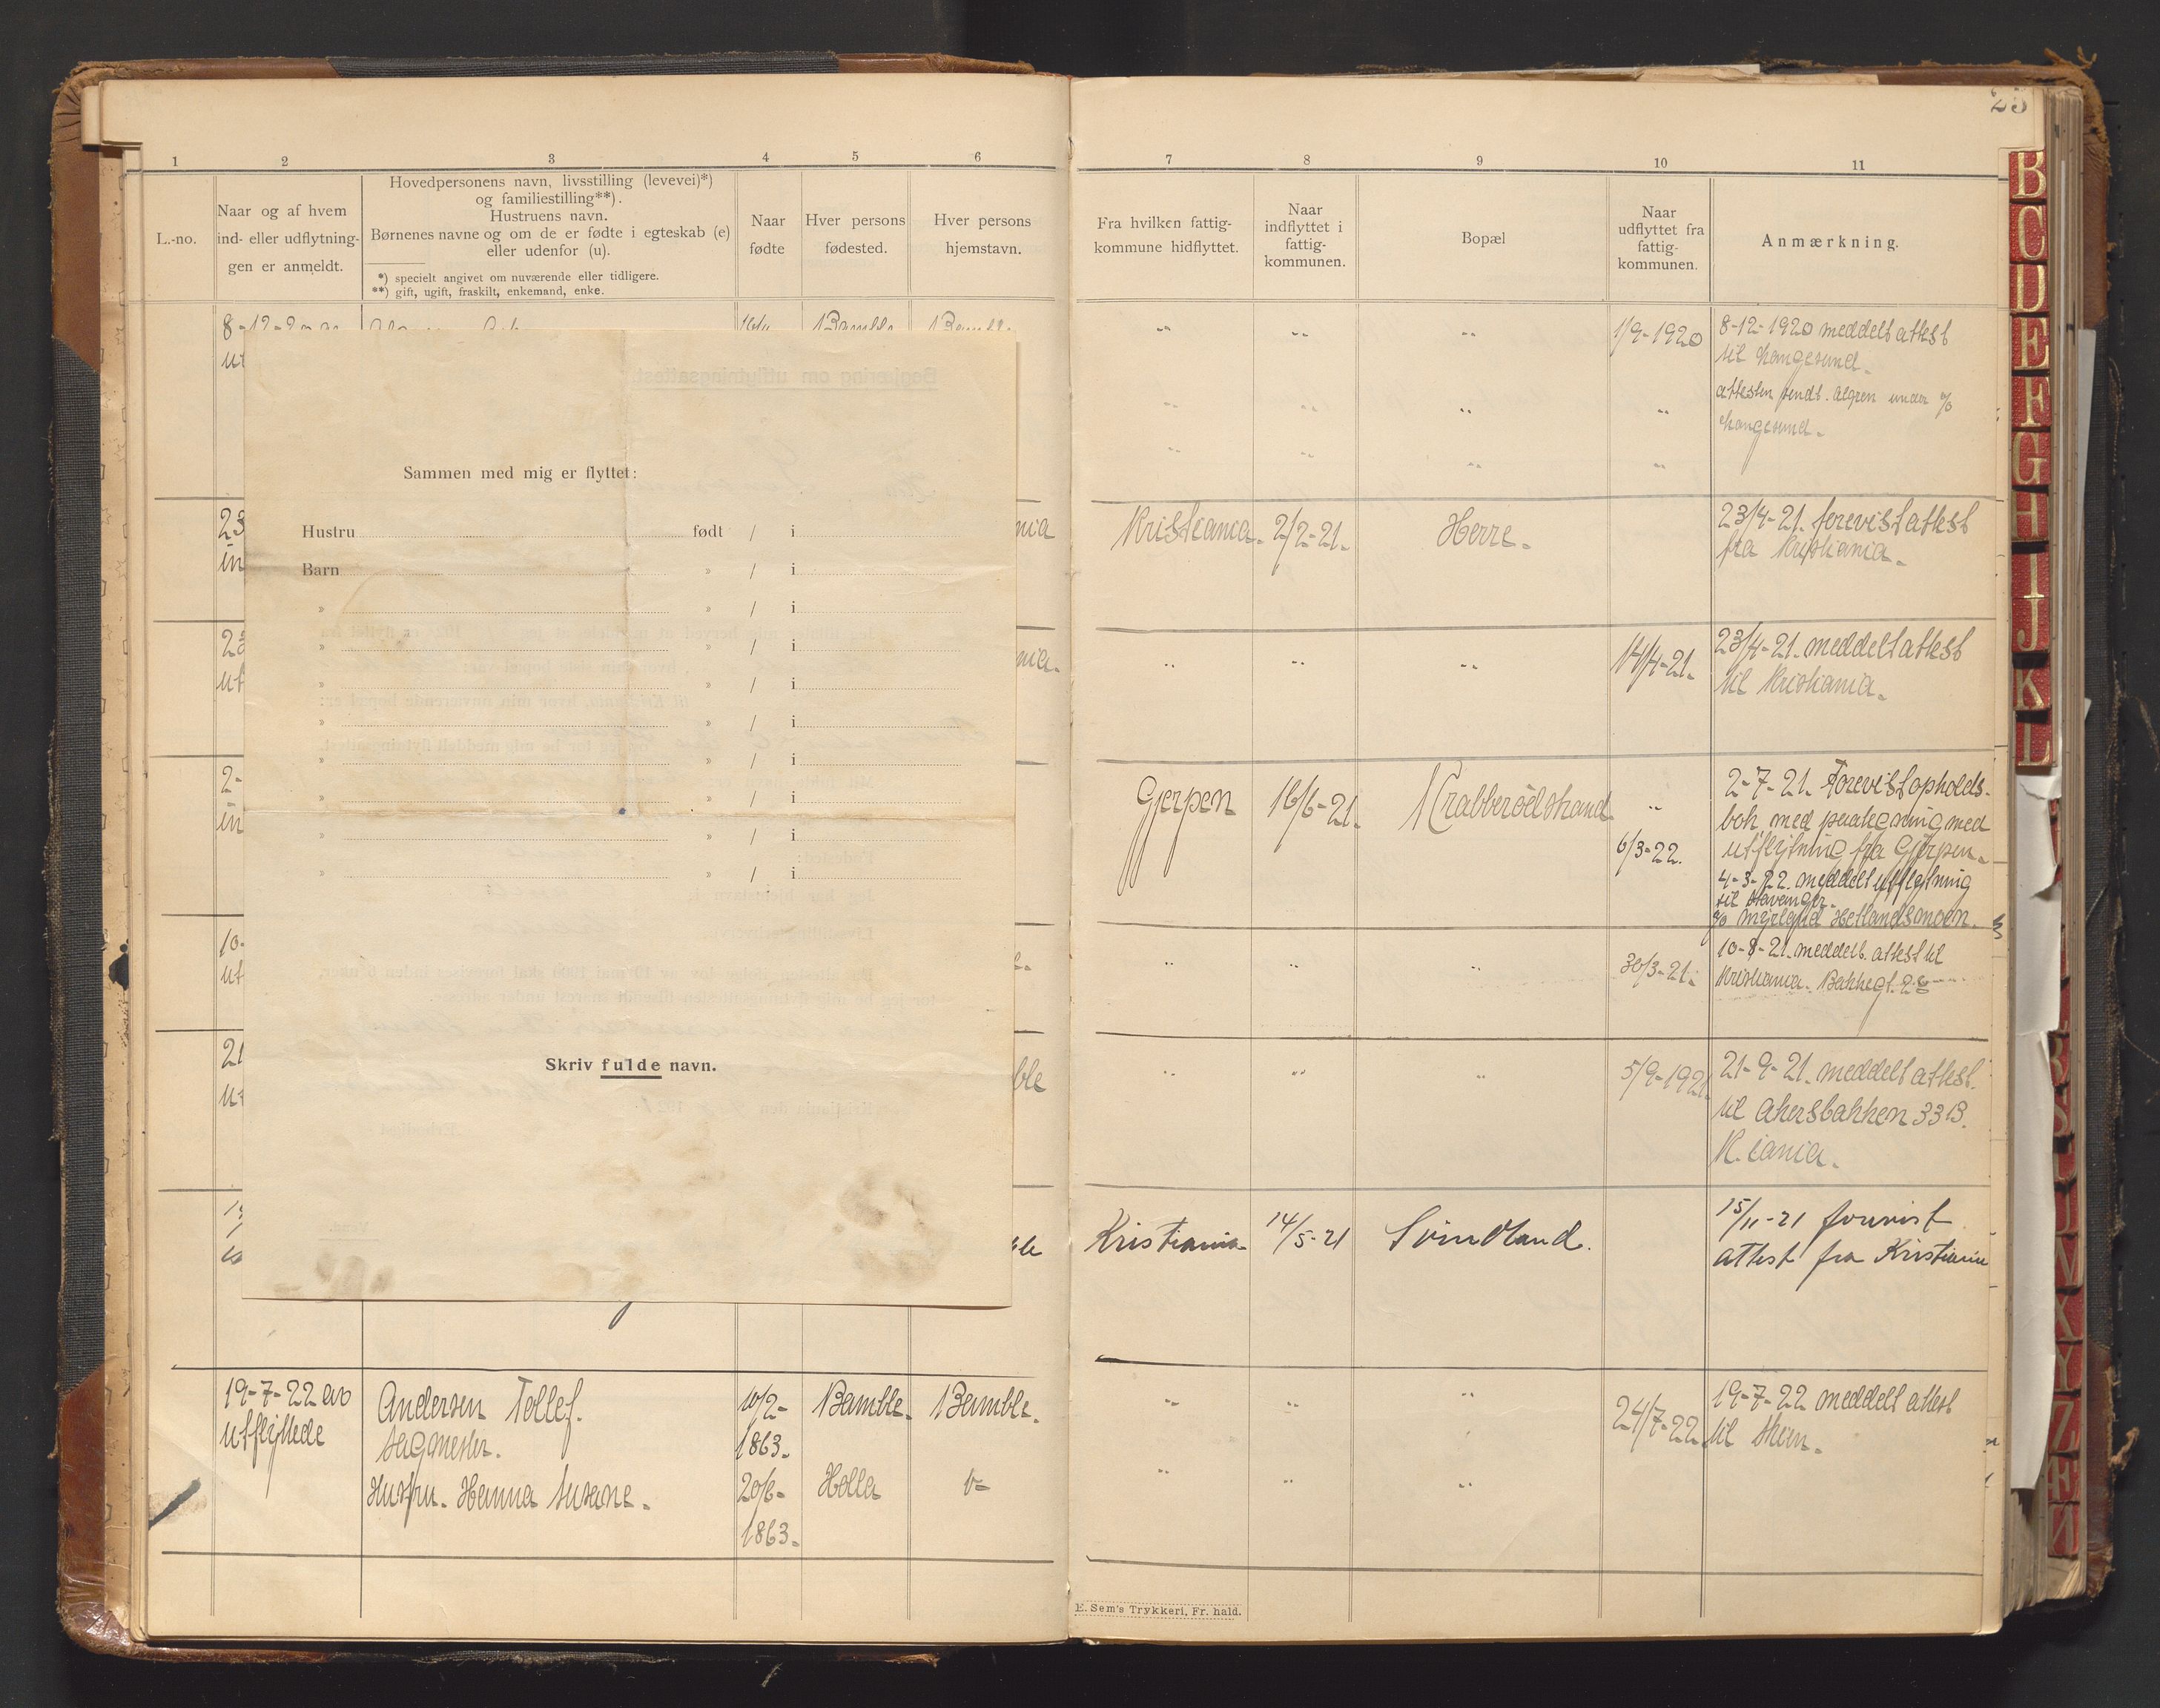 25
1 2 3 4 5 6
L.-no.
Naar og af hvem
ind- eller udflytnin-
gen er anmeldt.
Hovedpersonens navn, livsstilling (levevei)*)
og familiestilling**).
Hustruens navn.
Børnenes navne og om de er fødte i egteskab (e)
eller udenfor (u).
*) specielt angivet om nuværende eller tidligere.
**) gift, ugift, fraskilt, enkemand, enke.
Naar
fødte
Hver persons
fødested.
Hver persons
hjemstavn.
8-12-20
ut
Sammen med mig er flyttet:
Hustru født / i
Barn » / i
» » / i
» » / i
» » / i
» » / i
» » / i
» » / i
» » / i
» » / i
Skriv fulde navn.
23
in
nia
ut
nia.
2-
in
10-
ut
21
ut
ble
19-7-22 av
utflyttede
Andersen Tollef.
sagmester.
Hustru. Hanna Susane.
10/2-
1863.
20/6-
1863.
Bamble.
Holla
Bamble.
7 8 9 10 11
Fra hvilken fattig-
kommune hidflyttet.
Naar
indflyttet i
fattig-
kommunen.
Bopæl
Naar
udflyttet fra
fattig-
kommunen.
Anmærkning.
" " " 1/9-1920 8-12-1920 meddelt attest
til Haugesund.
attesten sendt. Algren under %
Haugesund.
Kristiania. 2/2-21. Herre. 23/4-21. forevist attest
fra Kristiania.
" " " 14/4-21. 23/4-21. meddelt attest
til Kristiania.
Gjerpen 16/6-21. Krabberødstrand " 2-7-21. Forevist opholds-
bok med paategning med
6/3-22. utflytning fra Gjerpen.
4-3-22. meddelt utflytning
til Stavanger.
% Hetlandsmoen.
" " " 30/3-21. 10-8-21. meddelt. attest til
Kristiania. Bakkegt. 28
" " " 5/9-1921. 21-9-21. meddelt attest.
til Akersbakken 33 B.
K.iania.
Kristiania 14/5-21 Svindland. 15/11-21 forevist
attest fra Kristiania
" " " 24/7-22. 19-7-22 meddelt attest
til Skien.
E. Sem's Trykkeri, Fr. hald.
B
C
D
E
F
G
H
I
J
K
L
X
Y
Z
Æ